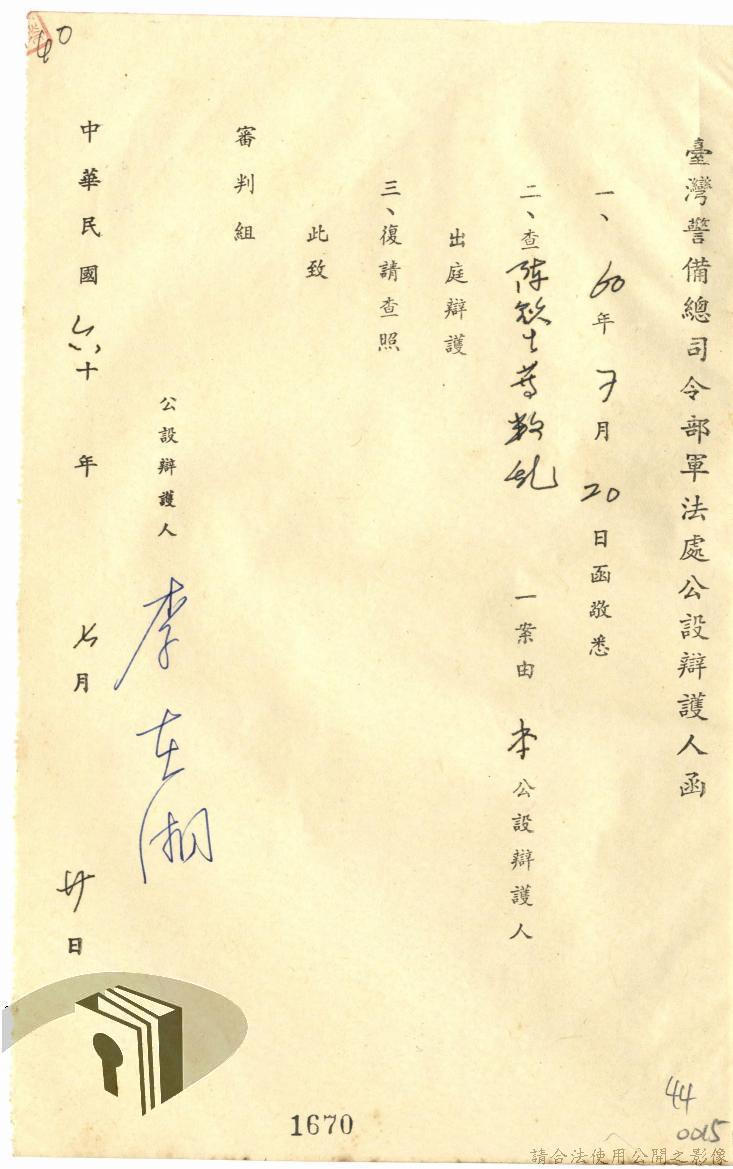 臺灣警備總司令部軍法處公設辯護人函
一、60年7月20日函敬悉
二、查陳欽生等叛乱一案由本公設辯護人
出庭辯護
三、復請查照
此致
審判組
公設辯護人 李在湖
中華民國六十年七月廿日
40
1670
44
0015
請合法使用公開之影像